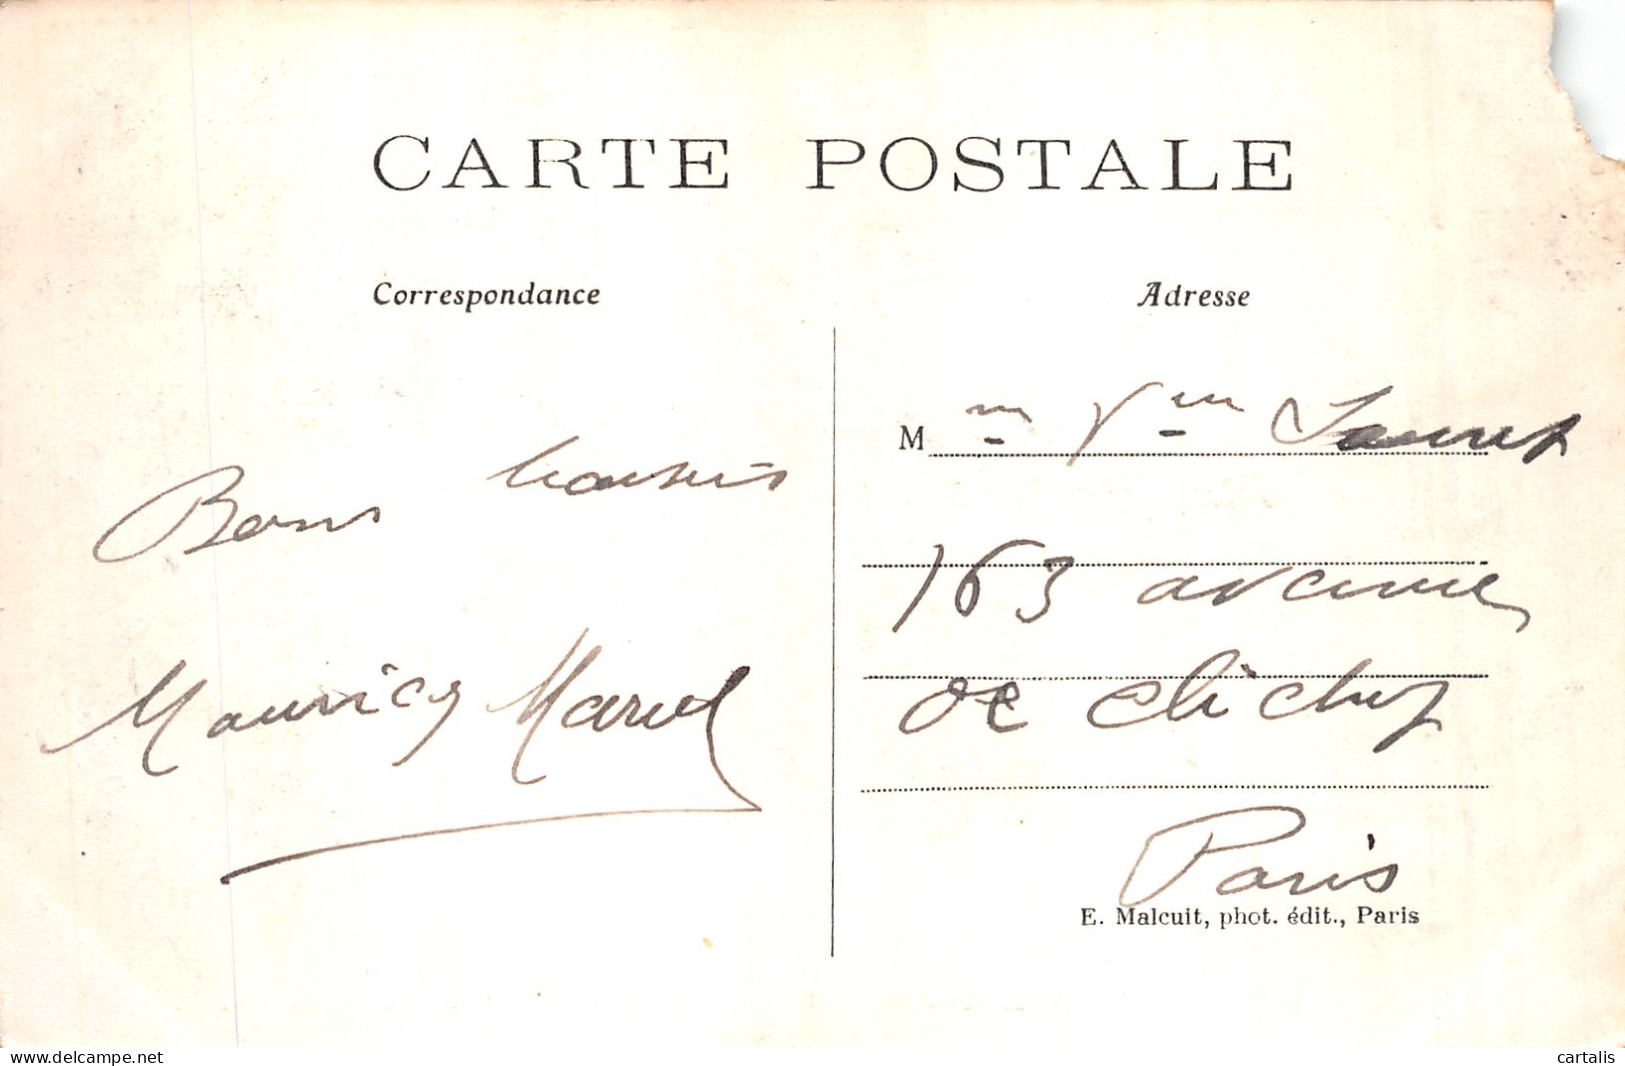 CARTE POSTALE
Correspondance
Bons baisers
Maurice Marcel
Adresse
M me Vve
163 avenue
de Clichy
Paris
E. Malcuit, phot. édit., Paris
www.delcampe.net
cartalis